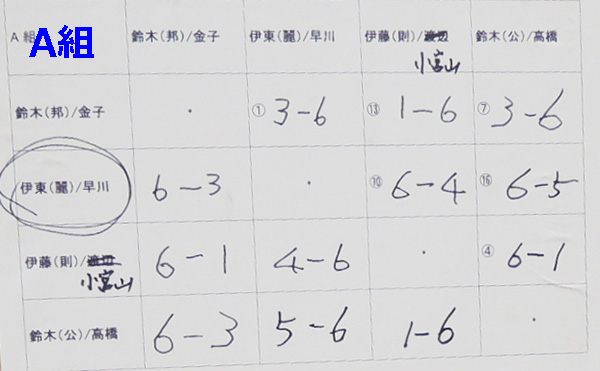 A組 A組 鈴木(邦)/金子 伊東(麗)/早川 伊藤(則)/渡辺 鈴木(公)/高橋
小宮山
鈴木(邦)/金子 · ① 3-6 ⑬ 1-6 ⑦ 3-6
伊東(麗)/早川 6-3 · ⑩ 6-4 ⑯ 6-5
伊藤(則)/渡辺 6-1 4-6 · ④ 6-1
小宮山
鈴木(公)/高橋 6-3 5-6 1-6 ·